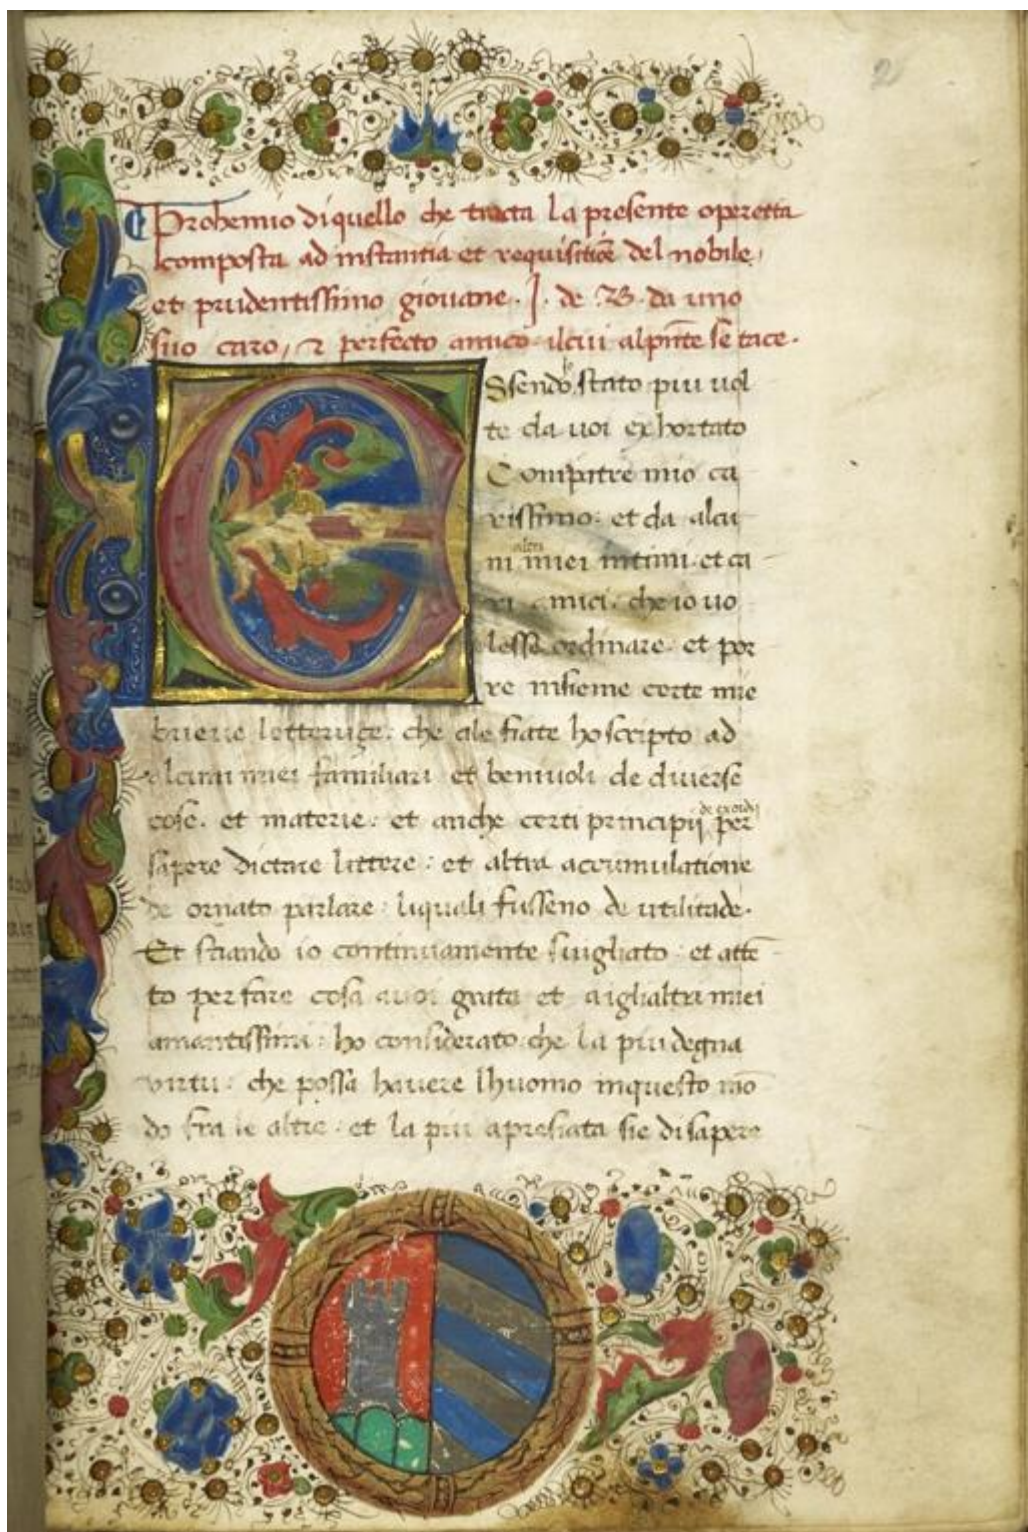 2
Prohemio di quello che tracta la presente operetta
composta ad instantia et requisitiōe del nobile,
et prudentissimo giouane. J. de B. da uno
suo caro, ⁊ perfecto amico ilcui alpn̄te se tace.
Essendo io stato piu uol
te da uoi exhortato
Compatre mio ca
rissimo: et da alcu
ni altri miei intimi. et ca
ri amici. che io uo
lesse ordinare. et por
re insieme certe mie
brieue letteruze. che ale fiate ho scripto ad
alcuni miei familiari et beniuoli de diuerse
cose. et materie. et anche certi principij de exordij per
sapere dictare littere: et altra accumulatione
de ornato parlare: liquali fusseno de utilitade.
Et stando io continuamente suigliato: et attē
to per fare cosa a uoi grata et aiglialtri miei
amantissimi: ho considerato che la piu degna
virtu: che possa hauere lhuomo inquesto mō
do fra le altre. et la piu apresiata sie di sapere